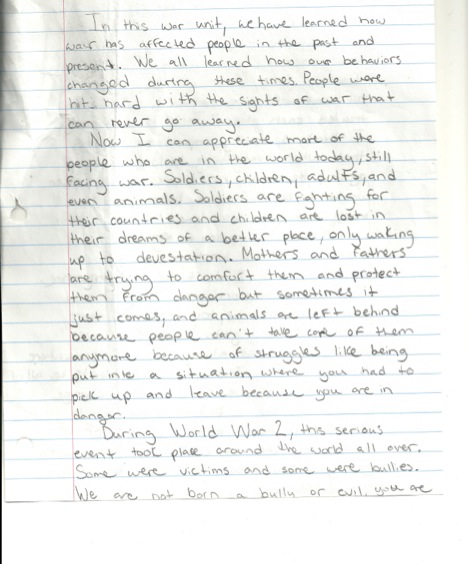 In this war unit, we have learned how
war has affected people in the past and
present. We all learned how our behaviors
changed during these times. People were
hit hard with the sights of war that
can never go away.
Now I can appreciate more of the
people who are in the world today, still
facing war. Soldiers, children, adults, and
even animals. Soldiers are fighting for
their countries and children are lost in
their dreams of a better place, only waking
up to devestation. Mothers and Fathers
are trying to comfort them and protect
them from danger but sometimes it
just comes, and animals are left behind
because people can't take care of them
anymore because of struggles like being
put into a situation where you had to
pick up and leave because you are in
danger.
During World War 2, this serious
event took place around the world all over.
Some were victims and some were bullies.
We are not born a bully or evil, you are